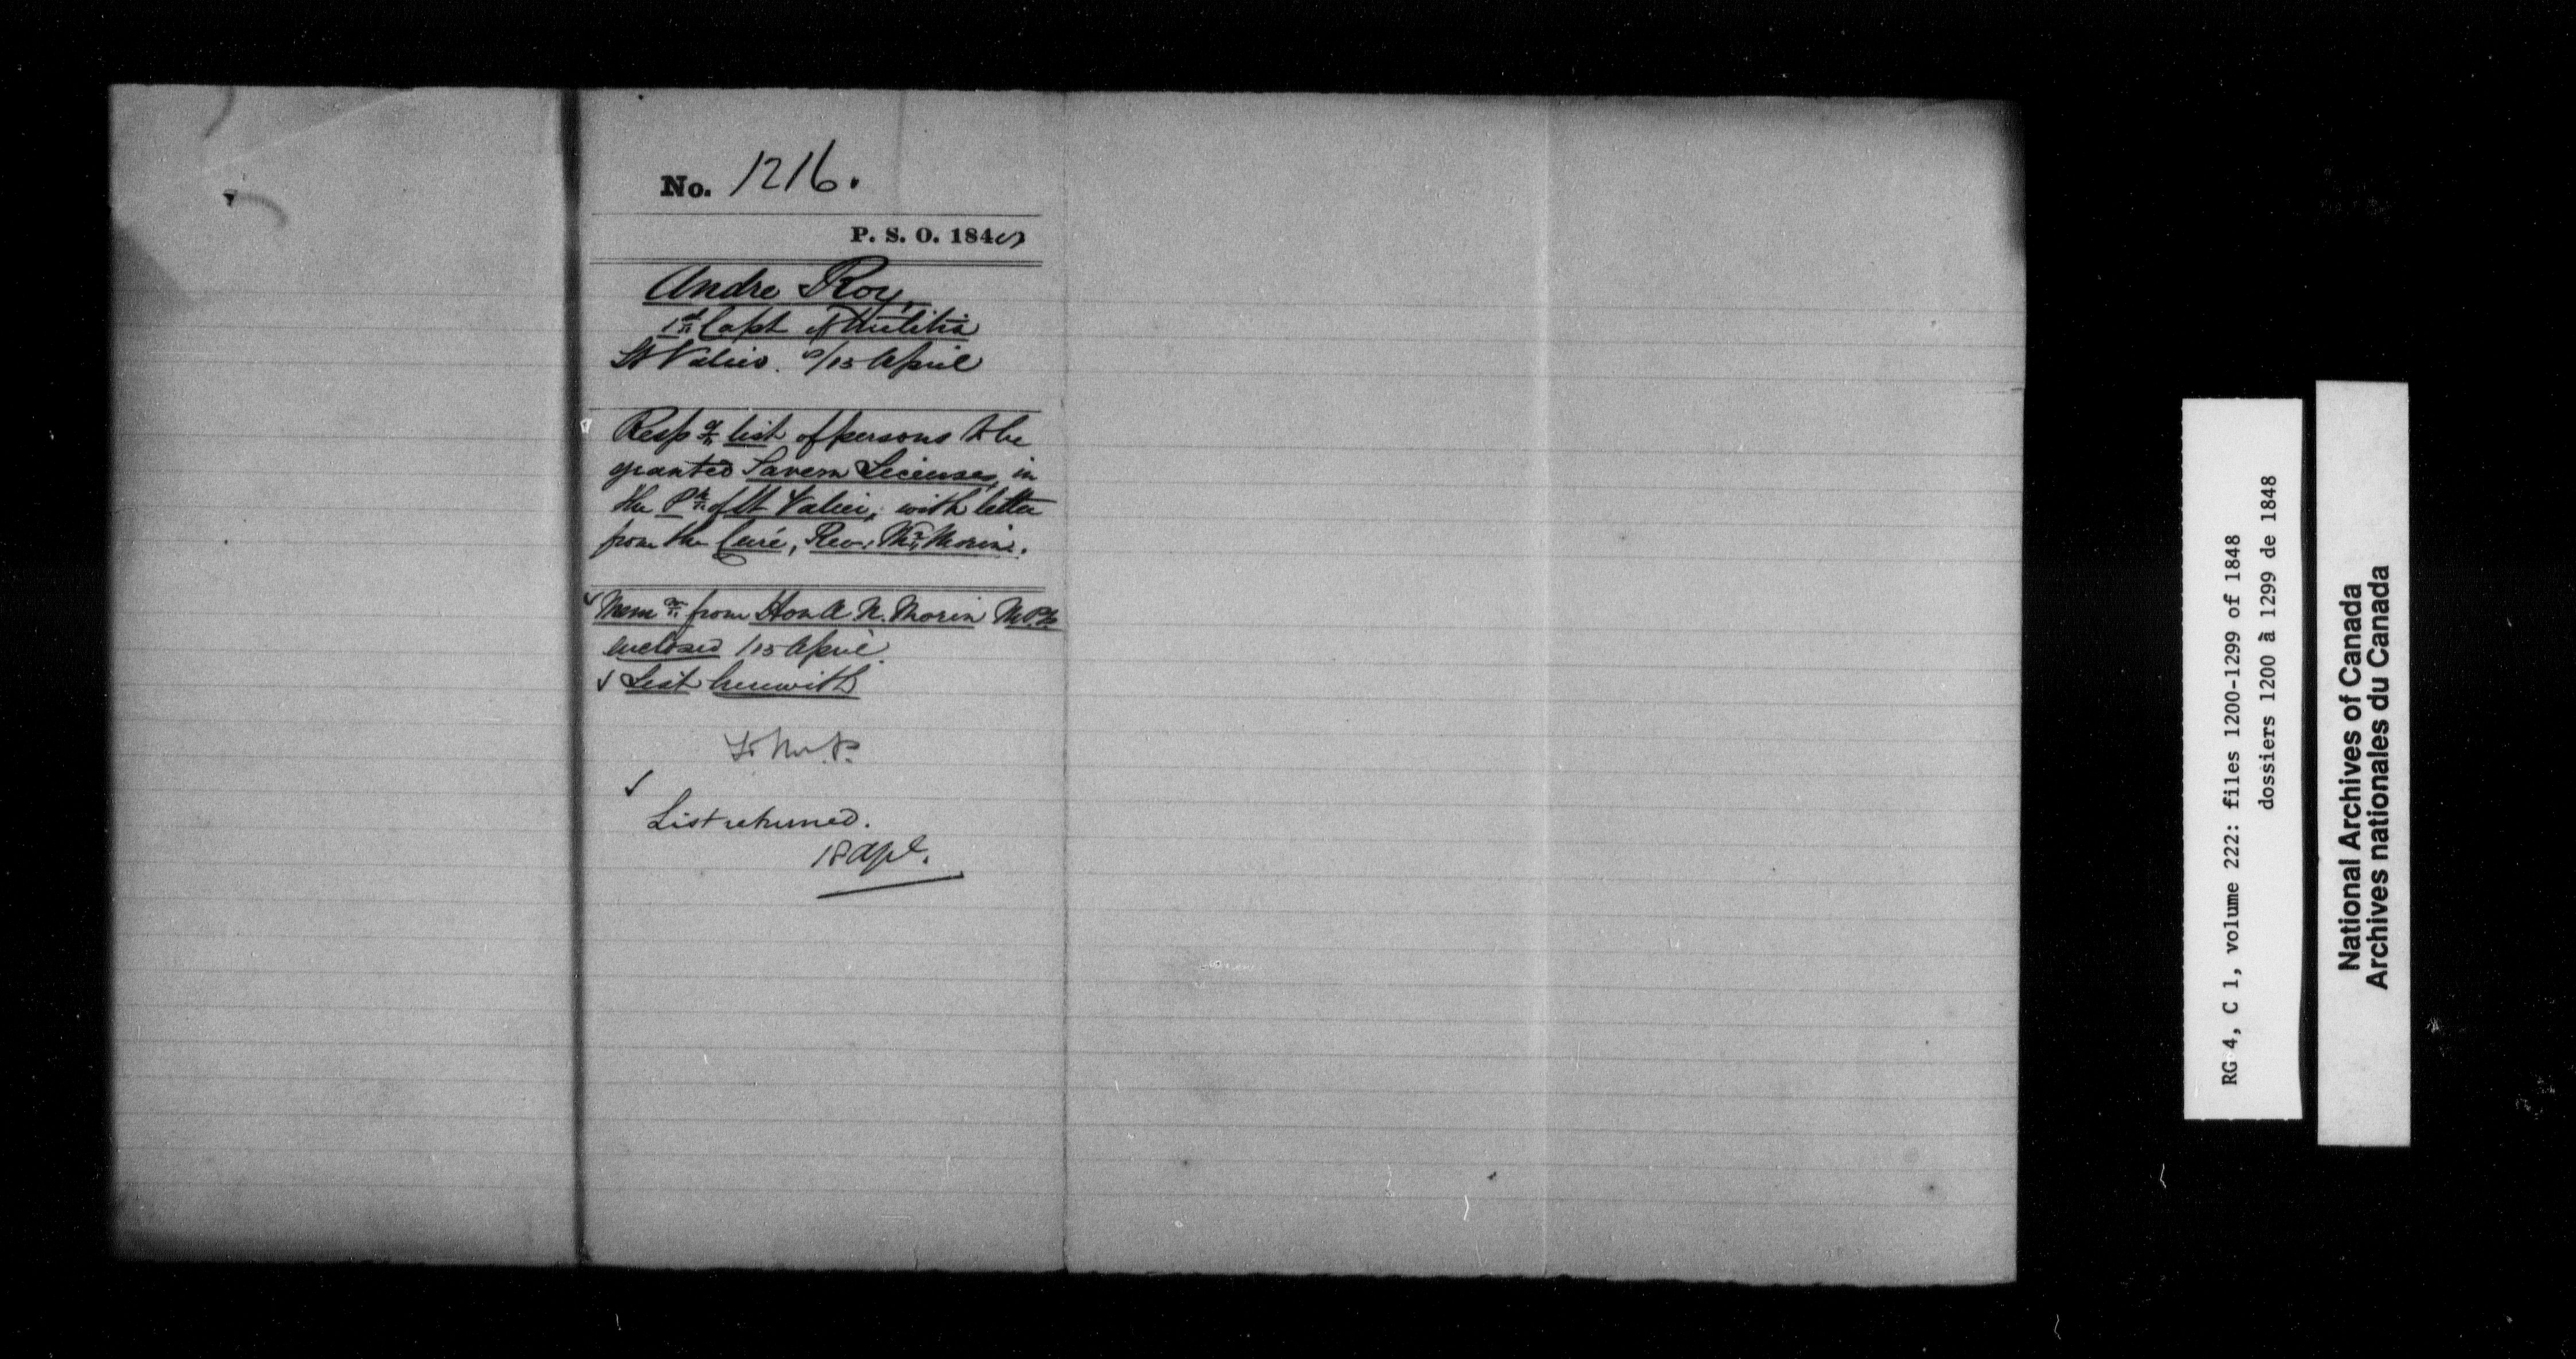 No. 1216.
P. S. O. 1848
Andre Roy,
1st Capt of Militia
St Valier. /15 April
Respg list of persons to be
granted Tavern Licenses, in
the Ph of St Valier, with letter
from the Curé, Revd Mr Morin.
Memm from Hon A. N. Morin M.P.P.
enclosed /15 April
List herewith
List returned.
18 Apl.
RG 4, C 1, volume 222: files 1200-1299 of 1848
dossiers 1200 à 1299 de 1848
National Archives of Canada
Archives nationales du Canada